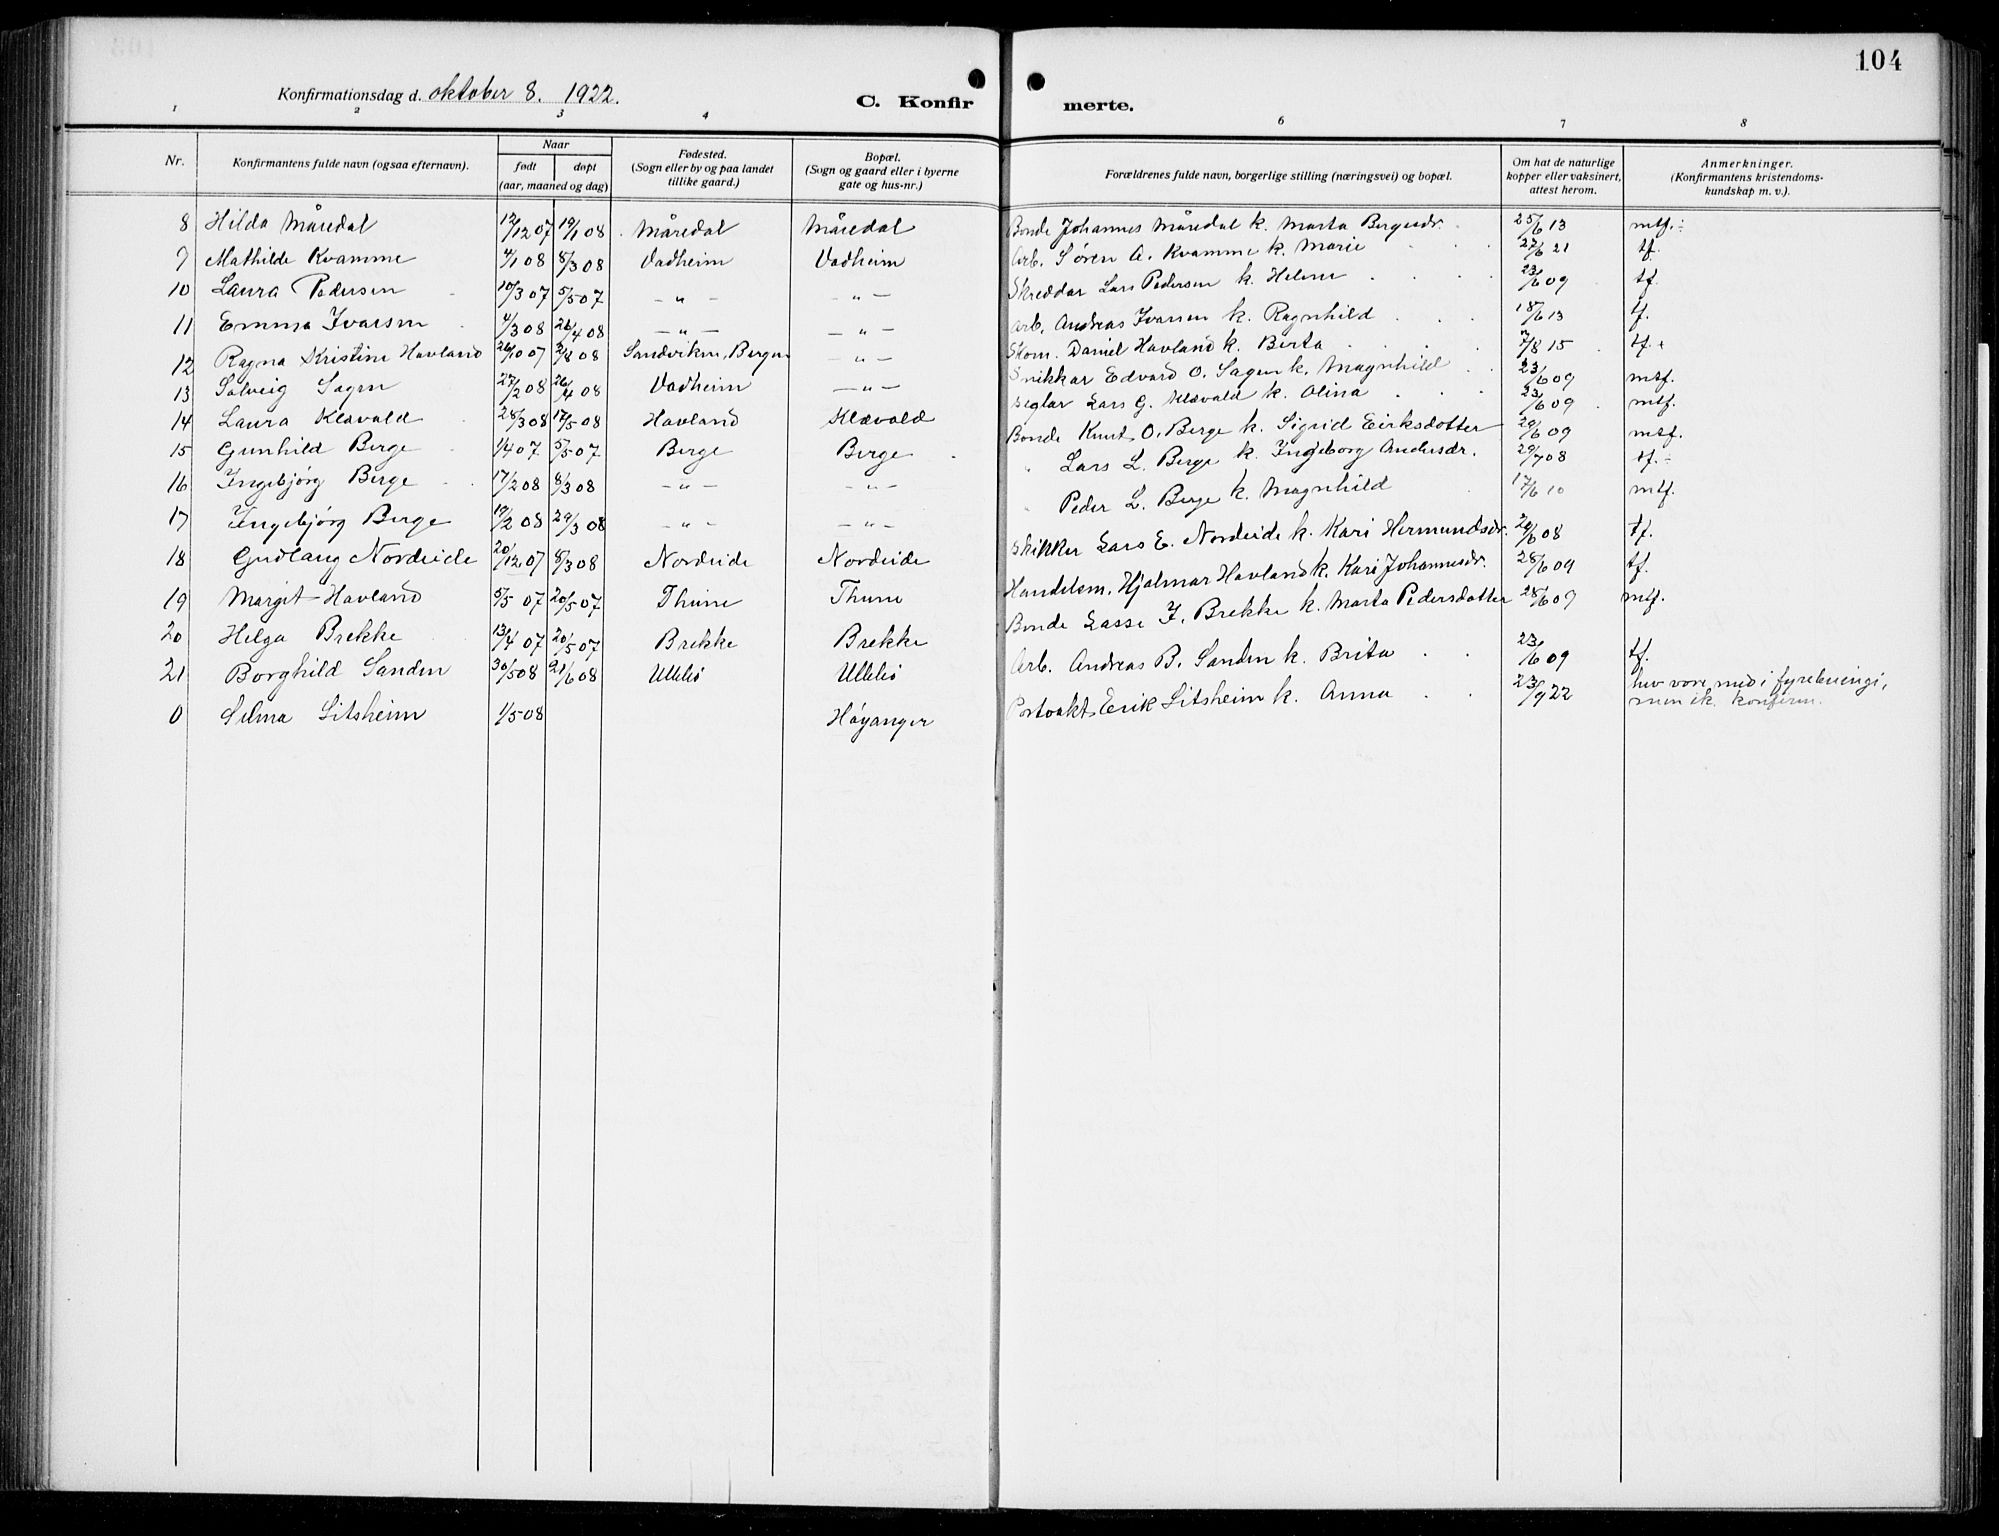 104
Konfirmationsdag d. oktober 8. 1922.
C. Konfirmerte.
1 2 3 4 6 7 8
Nr. Konfirmantens fulde navn (ogsaa efternavn). Naar født døpt (aar, maaned og dag) Fødested. (Sogn eller by og paa landet tillike gaard.) Bopæl. (Sogn og gaard eller i byerne gate og hus-nr.) Forældrenes fulde navn, borgerlige stilling (næringsvei) og bopæl. Om hat de naturlige kopper eller vaksinert, attest herom. Anmerkninger. (Konfirmantens kristendomskundskap m. v.).
8 Hilda Måredal 12/12 07 19/1 08 Måredal Måredal Bonde Johannes Måredal k. Marta Bergesdr. 25/6 13 mtf.
9 Mathilde Kvamme 4/1 08 8/3 08 Vadheim Vadheim Arb. Søren A. Kvamme k. Marie 27/6 21 tf.
10 Laura Pedersen 10/3 07 5/5 07 -„- -„- Skreddar Lars Pedersen k. Helene 23/6 09 tf.
11 Emma Ivarsen 4/3 08 26/4 08 -„- -„- Arb. Andreas Ivarsen k. Ragnhild 18/6 13 tf.
12 Ragna Kristine Havland 26/10 07 2/8 08 Sandviken, Bergen -„- Skom. Daniel Havland k. Berta 7/8 15 tf.
13 Solveig Sagen 27/2 08 26/4 08 Vadheim -„- Snikkar Edvard O. Sagen k. Magnhild 23/6 09 mtf.
14 Laura Klævold 28/3 08 17/5 08 Havland Klævold Seglar Lars G. Klævold k. Olina 23/6 09 mtf.
15 Gunhild Berge 1/4 07 5/5 07 Berge Berge Bonde Knut O. Berge k. Sigrid Eirksdotter 29/6 09 mtf.
16 Ingebjørg Berge 17/2 08 8/3 08 -„- -„- „ Lars L. Berge k. Ingeborg Andersdr. 29/7 08 tf.
17 Ingebjørg Berge 19/2 08 29/3 08 -„- -„- „ Peder L. Berge k. Magnhild 17/6 10 mtf.
18 Gudlaug Nordeide 20/12 07 8/3 08 Nordeide Nordeide Lars E. Nordeide k. Kari Hermundsdr. 29/6 08 tf.
19 Margit Havland 5/5 07 20/5 07 Thune Thune Handelsm. Hjalmar Havland k. Kari Johannesdr. 28/6 09 tf.
20 Helga Brekke 13/4 07 20/5 07 Brekke Brekke Bonde Lasse I. Brekke k. Marta Pedersdotter 28/6 09 mtf.
21 Borghild Sanden 30/5 08 21/6 08 Ullebø Ullebø Arb. Andreas B. Sanden k. Brita 23/6 09 tf.
0 Selma Sitsheim 1/5 08 Høyanger Portvakt Erik Sitsheim k. Anna 23/9 22 hev vore med i fyrebuingi,
men ik. konferm.